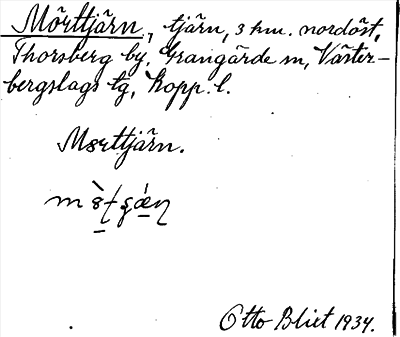 Mörttjärn, tjärn, 3 km. nordöst,
Thorsberg by, Grangärde sn, Väster-
bergslags tg, Kopp. l.
Mörttjärn.
Otto Blixt 1934.